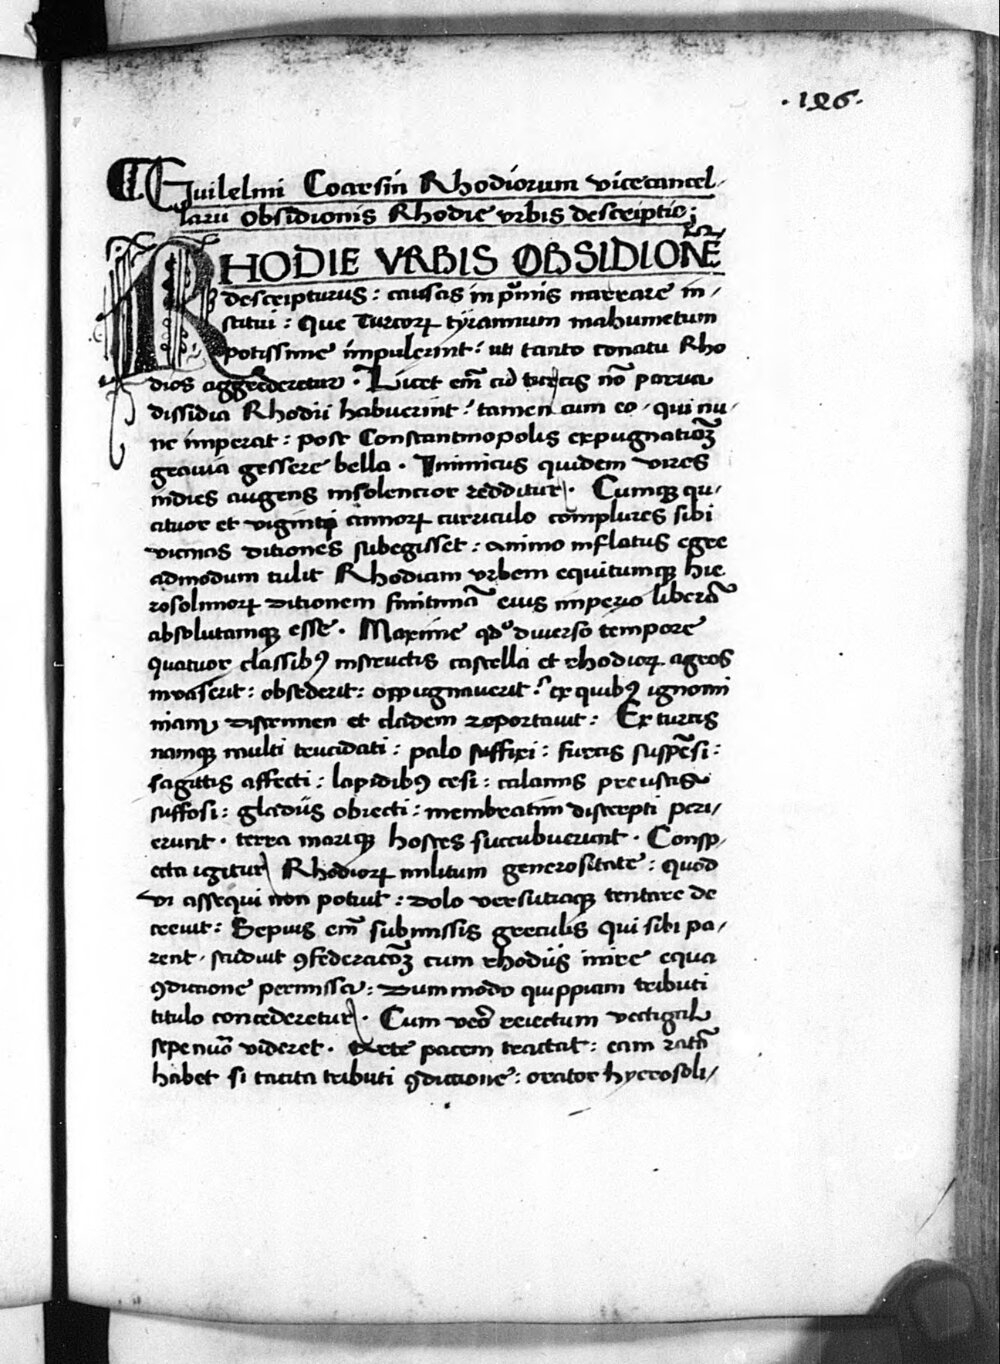 ·126·
Guilelmi Coarsin Rhodiorum vicecancel/
larii obsidionis Rhodie vrbis descriptio;
RHODIE VRBIS OBSIDIONE
descripturus: causas in pͥmis narrare in/
stitui: Que Turcoꝝ tyrannum mahumetum
potissime impulerint: ut tanto conatu Rho
dios aggrederetur. Licet em̄ cū turcis nō parua
dissidia Rhodii habuerint: tamen cum eo, qui nu/
nc imperat: post Constantinopolis expugnatiōꝫ
grauia gessere bella. Inimicus quidem vires
indies augens insolencior redditur. Cumqꝫ qu/
atuor et viginti annoꝝ curriculo complures sibi
vicinas ditiones subegisset: animo inflatus egre
admodum tulit Rhodiam vrbem equitumqꝫ hie
rosolimoꝝ ditionem finitimā eius imperio liberā
absolutamqꝫ esse. Maxime qdͦ diuerso tempore
quatuor classibꝰ instructis castella et rhodioꝝ agros
inuaserit: obsederit: oppugnauerit: ex quibꝰ ignomi
niam, discrimen et cladem reportauit: Ex turcis
namqꝫ multi trucidati: palo suffixi: furcis suspēsi:
sagittis affecti: lapidibꝰ cesi: calamis preustis
suffosi: gladiis obiecti: membratim discerpti peri/
erunt. terra mariqꝫ hostes succubuerunt. Consp/
ecta igitur Rhodioꝝ militum generositate: Quod
vi assequi non potuit: dolo versutiaqꝫ tentare de
creuit: Sepius em̄ submissis greculis qui sibi pa/
rent, studuit ꝯfederacōꝫ cum rhodiis inire equa
ꝯdictione permissa: Dummodo quippiam tributi
titulo concederetur. Cum veō reiectum vectigal
sepenuō videret. Arte pacem tractat: eam ratā
habet si tacita tributi ꝯdictione: orator hyerosoli/